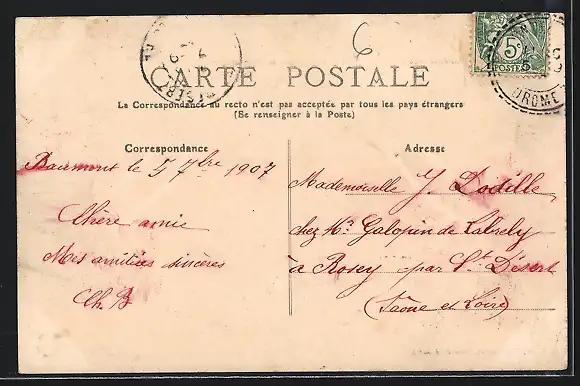 6
5c
POSTES
DROME
CARTE POSTALE
La Correspondance au recto n'est pas acceptée par tous les pays étrangers
(Se renseigner à la Poste)
Correspondance
Beaumont le 5 7bre 1907
Chère amie
Mes amitiées sincères
Ch. B
Adresse
Mademoiselle J. Dodille
chez Mr Galopin de
à Rosey par St Désert
(Saône et Loire)